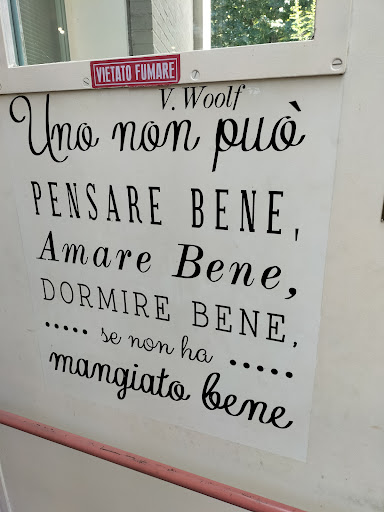 VIETATO FUMARE
V. Woolf
Uno non può
PENSARE BENE,
Amare Bene,
DORMIRE BENE,
..... se non ha .....
mangiato bene